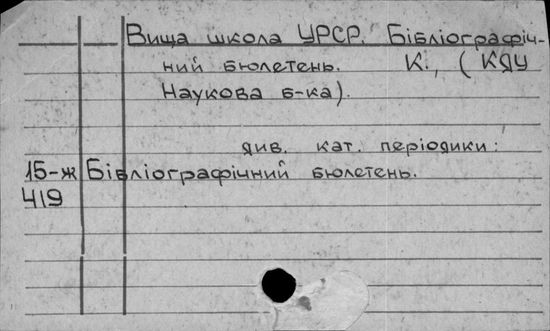 Вища школа УРСР. Бібліографіч-
ний бюлетень. К., (КДУ
Наукова б-ка).
див. кат. періодики:
15-ж Бібліографічний бюлетень.
419